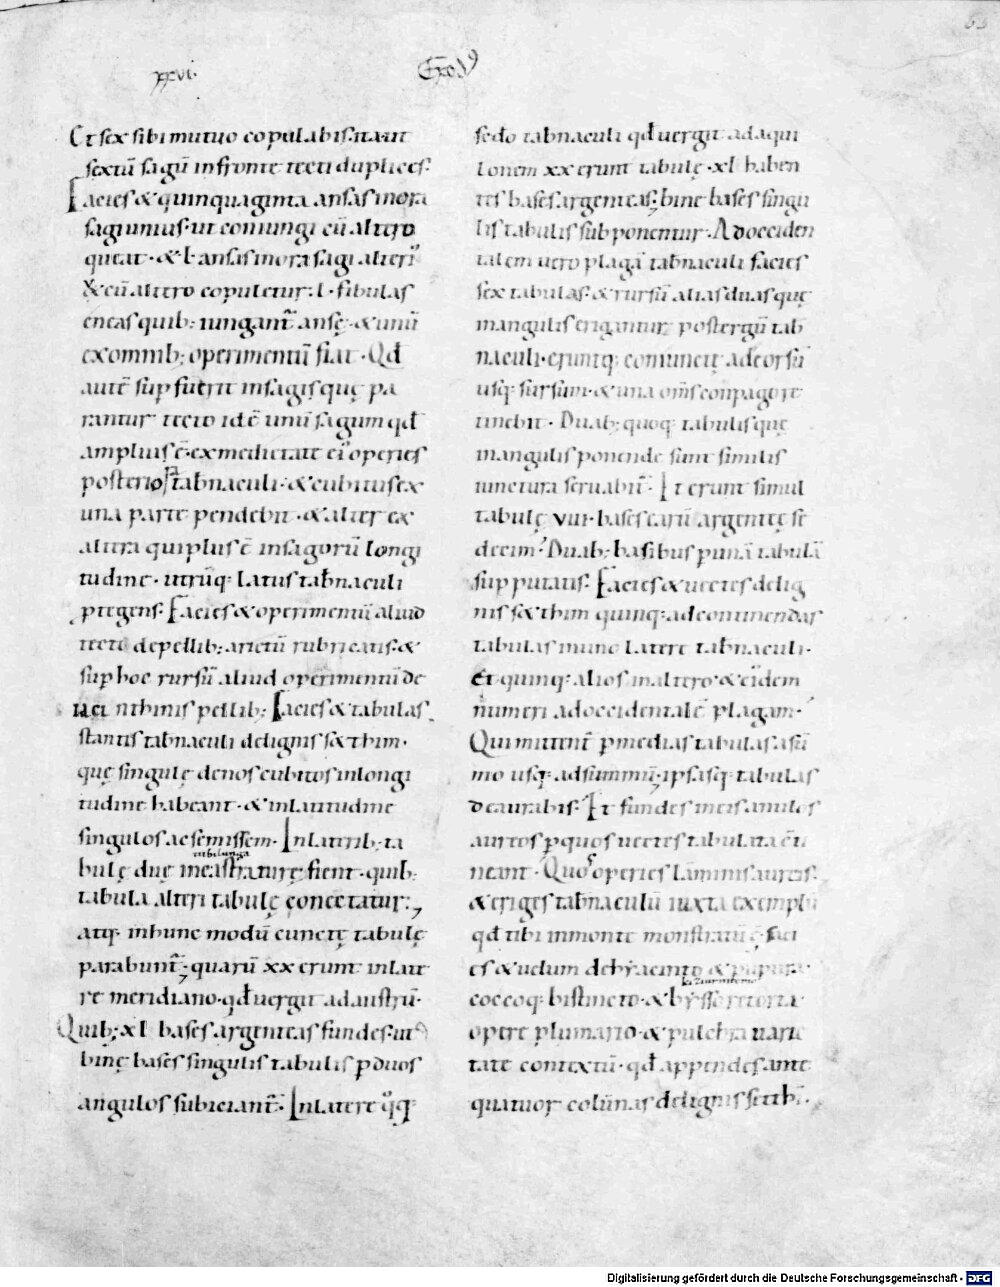 65
xxvi. Exod9
Et sex sibi mutuo copulabis. ita ut
sextū sagū in fronte tecti duplices.
Facies & quinquaginta ansas in ora
sagi unius. ut coniungi cū altero
queat. & l. ansas in ora sagi alteri᷒
& cū altero copuletur. l. fibulas
eneas quib; iungant᷑ ansę. & unū
ex omnib; operimentū fiat. Qđ
autē sup fuerit in sagis quę pa
rantur tecto id ē unū sagum qđ
amplius ē. ex medietate ei᷒ operies
posteriora tab̄naculi. & cubitus ex
una parte pendebit. & alter ex
altera qui plus ē in sagorū longi
tudine. utrūq; latus tab̄naculi
ptegens. Facies & operimentū aliud
tecto de pellib; arietū rubricatis. &
sup hoc rursū aliud operimentū de
iaci nthinis pellib; Facies & tabulas
stantis tab̄naculi de lignis sæthim.
quę singulę denos cubitos in longi
tudine habeant. & in latitudine
singulos ac semissem. In laterib; ta
bulę duę incastraturę fient. quib;
tabula alteri tabulę conectatur;
atq; in hunc modū cunctę tabulę
parabunt᷑; quarū xx erunt in late
re meridiano. qđ uergit ad austrū.
Quib; xl bases argenteas fundes. ut
binę bases singulis tabulis p duos
angulos subiciant᷑. In latere q̊q;
secdo tab̄naculi qđ uergit ad aqui
lonem xx erunt tabulę. xl haben
tes bases argenteas; bine bases singu
lis tabulis subponentur. Ad occiden
talem uero plagā tab̄naculi facies
sex tabulas. & rursū alias duas quę
in angulis erigantur post ergū tab̄
naculi. eruntq; coniuncte a deorsū
usq; sursum. & una om̄s conpagote
tinebit. Duab; quoq; tabulis quę
in angulis ponende sunt similis
iunctura seruabit᷑. Et erunt simul
tabulę viii. bases earū argenteę se
decim. Duab; basibus p unā tabulā
supputatis. Facies & uectes de lig
nis sæthim quinq; ad continendas
tabulas in uno latere tab̄naculi.
Et quinq; alios in altero. & eiusdem
numeri ad occidentalē plagam.
Qui mittent᷑ p medias tabulas a sū
mo usq; ad summū. ipsasq; tabulas
deaurabis. Et fundes in eis anulos
aureos p quos uectes tabulata cō
neant. Quos operies lāminis aureis.
& eriges tab̄naculū iuxta exemplū
qđ tibi in monte monstratū ē. Faci
es & uelum de hyacinto & purpura.
coccoq; bis tincto. & bysso retorta
opere plumario. & pulchra uarie
tate contextū. qđ appendes ante
quatuor colūnas de lignis setthi.
Digitalisierung gefördert durch die Deutsche Forschungsgemeinschaft - DFG